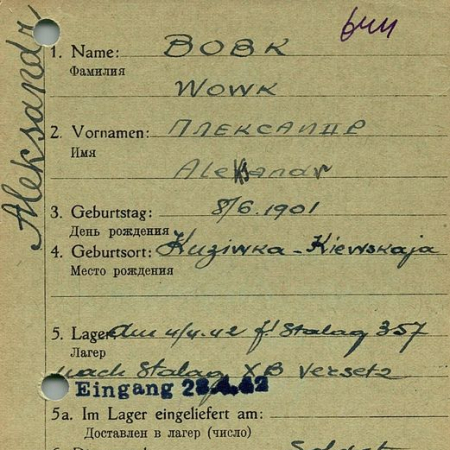 Aleksandr
1. Name: ВОВК
Фамилия
Wowk
2. Vornamen: Александр
Имя
Aleksandr
3. Geburtstag: 8/6.1901
День рождения
4. Geburtsort: Kuziwka-Kiewskaja
Место рождения
5. Lager: am 4/4.42 f. Stalag 357
Лагер
nach Stalag XB versetz
Eingang 22.4.42
5a. Im Lager eingeliefert am:
Доставлен в лагер (число)
Soldat